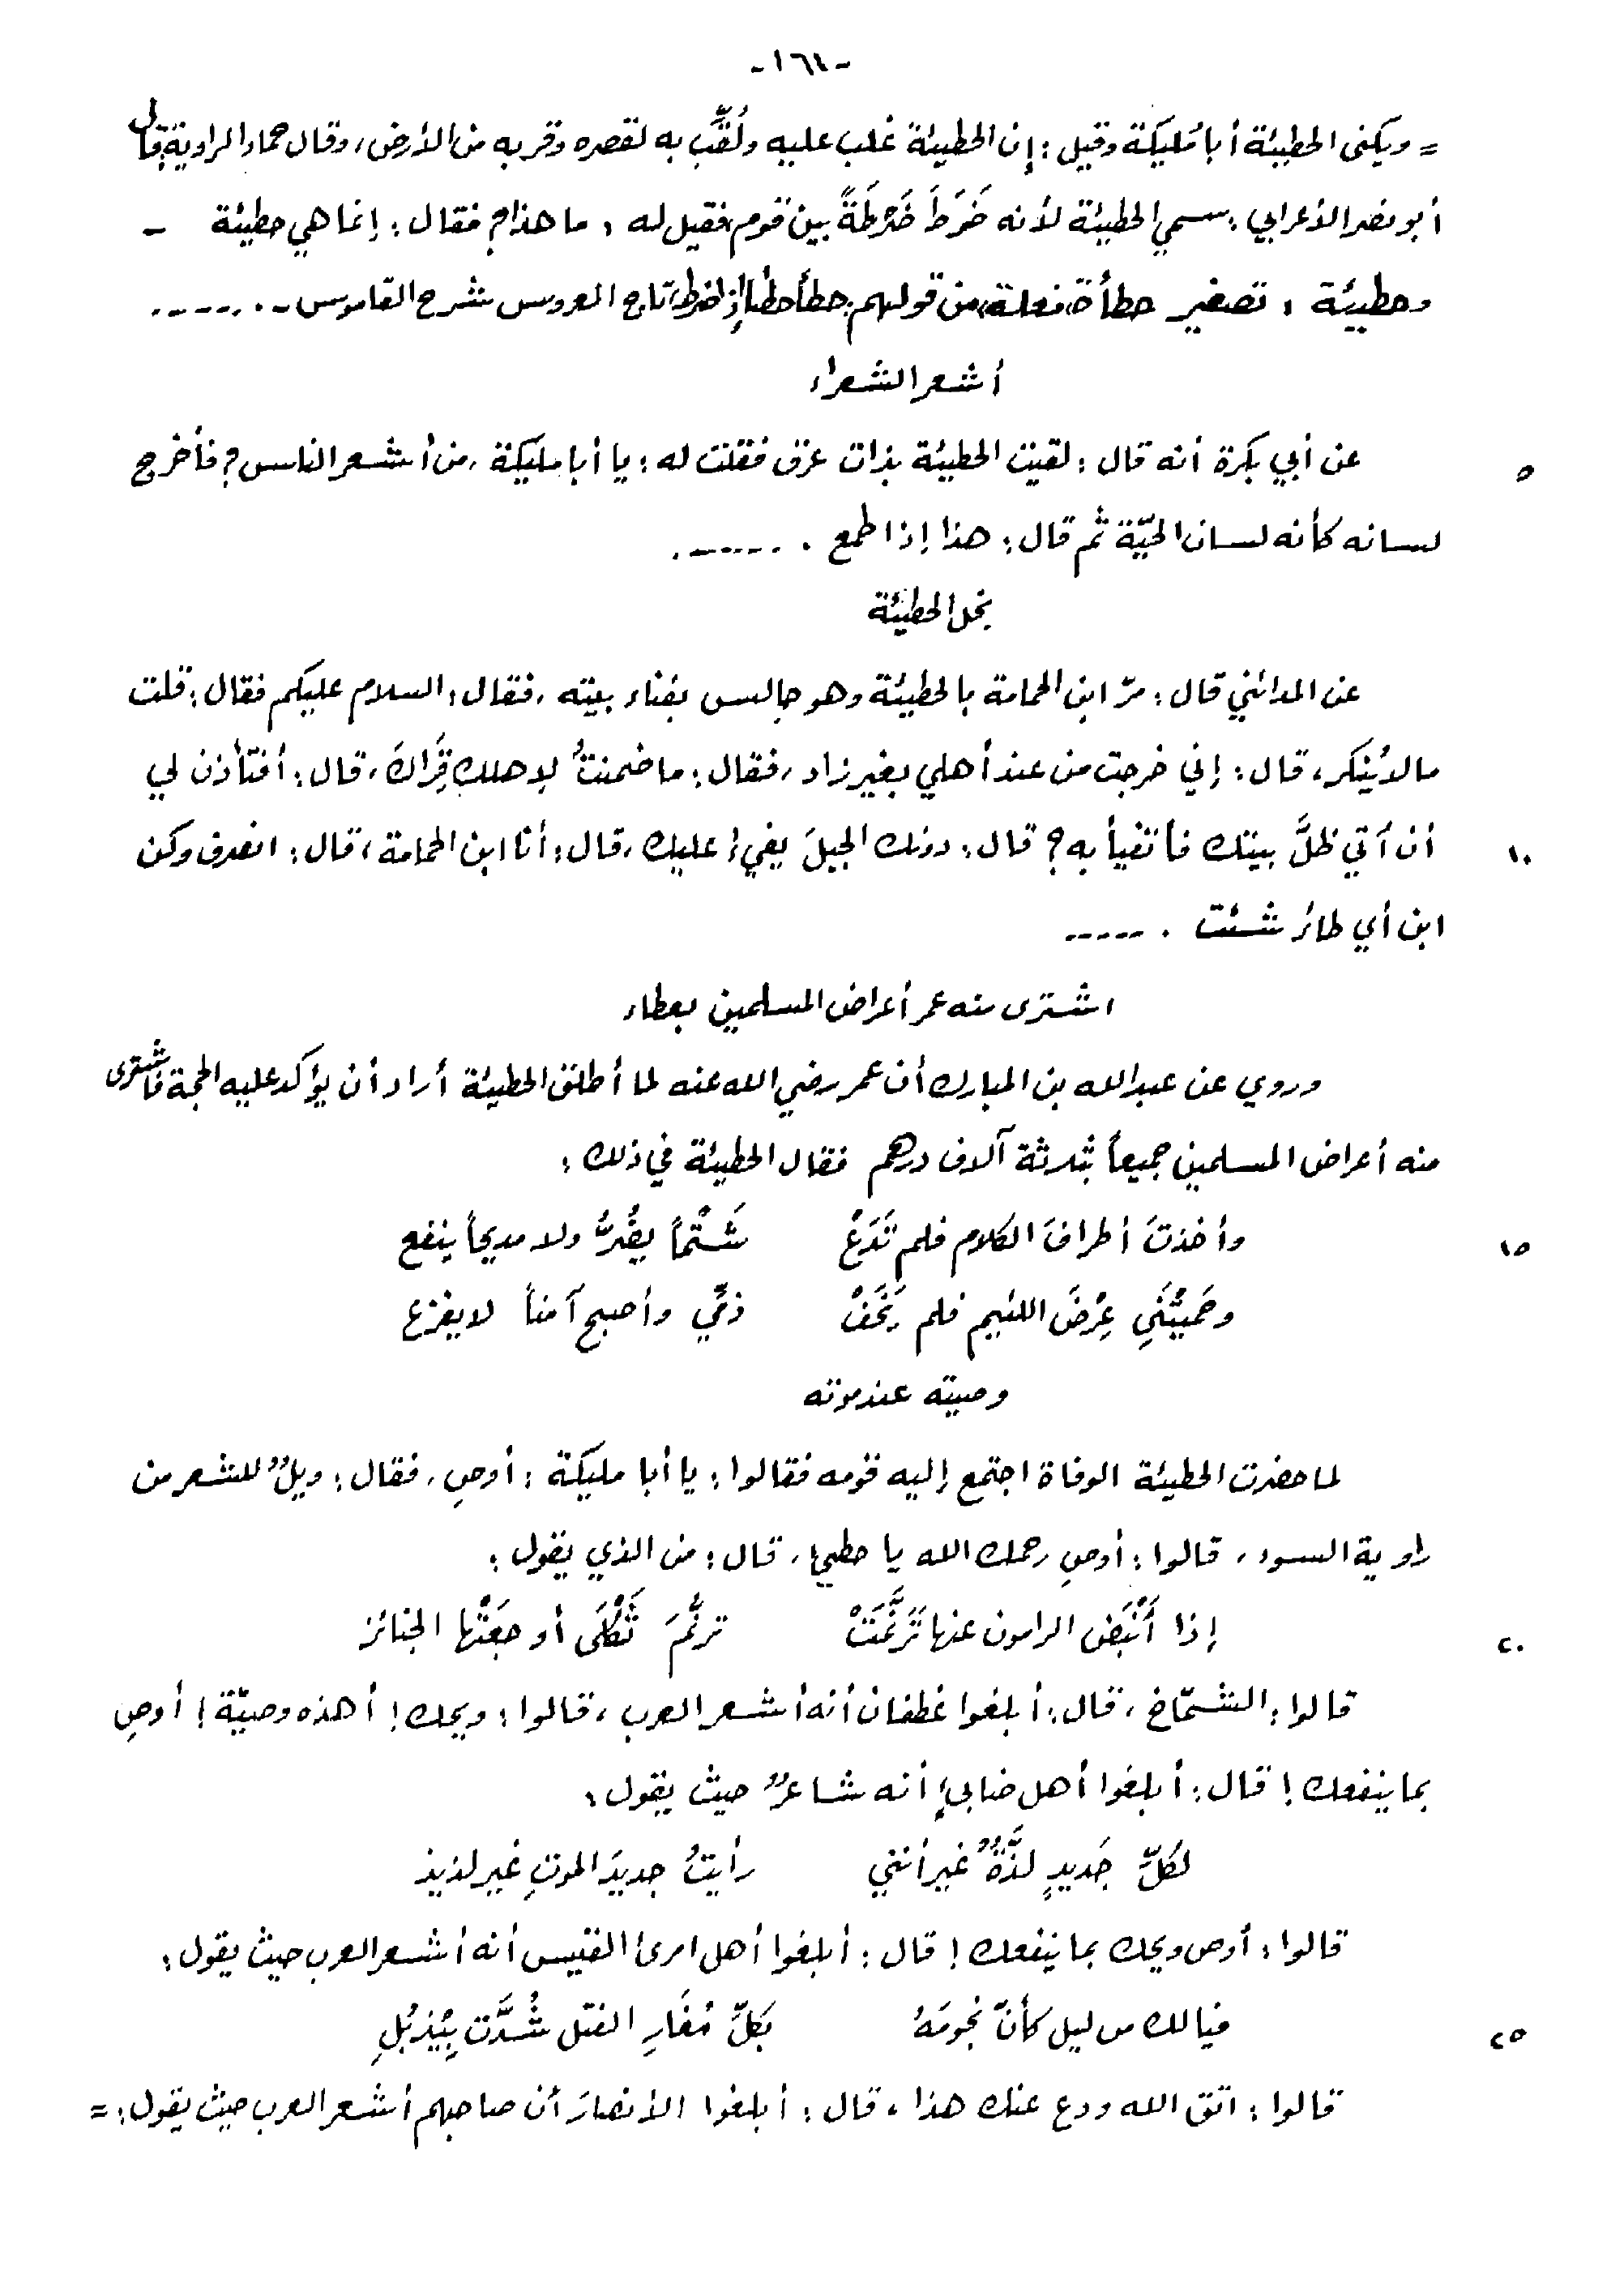 -١٦٤-
= ويكنى الحطيئة أبا مُليَكة وقيل : إن الحطيئة غلب عليه ولُقِّب به لقصره وقربه من الأرض، وقال حماد الراوية: قال
أبو نصر الأعرابي : سمي الحطيئة لأنه ضَرَطَ ضَرْطَةً بين قوم فقيل له : ما هذا؟ فقال : إنما هي حطيئة -
وحطيئة : تصغير حطأة، فعلة، من قولهم : حطأ حطْأً إذا ضرط، تاج العروس شرح القاموس - . ------ .
أشعر الشعراء
٥ عن أبي بكرة أنه قال : لقيت الحطيئة بذات عرق فقلت له : يا أبا مليكة ، من أشعر الناس ؟ فأخرج
لسانه كأنه لسان الحيّة ثم قال : هذا إذا طمع . ------ .
بخل الحطيئة
عن المدائني قال : مرّ ابن الحمامة بالحطيئة وهو جالس بفناء بيته ، فقال : السلام عليكم فقال : قلت
ما لا يُنكر ، قال : إني خرجت من عند أهلي بغير زاد ، فقال : ما ضمنتُ لأهلك قِراكَ ، قال : أفتأذن لي
١٠ أن آتي ظلَّ بيتك فأتفيأ به ؟ قال : دونك الجبلَ يفيءُ عليك ، قال : أنا ابن الحمامة ، قال : انصرف وكن
ابن أي طائر شئت . -----
اشترى منه عمر أعراض المسلمين بعطاء
وروي عن عبدالله بن المبارك أن عمر رضي الله عنه لما أطلق الحطيئة أراد أن يؤكد عليه الحجة فاشترى
منه أعراض المسلمين جميعاً بثلاثة آلاف درهم فقال الحطيئة في ذلك :
١٥ وأخذتَ أطرافَ الكلام فلم تَدَعْ شَتْماً يضُرُّ ولا مديحاً ينفع
وحَميْتَني عِرْضَ اللئيم فلم يَخَفْ ذمِّي وأصبح آمناً لا يفزع
وصيته عند موته
لما حضرت الحطيئة الوفاة اجتمع إليه قومه فقالوا : يا أبا مليكة : أوصِ ، فقال : ويلٌ للشعر من
راوية السوء ، قالوا : أوصِ رحمك الله يا حطيءُ ، قال : من الذي يقول :
٢٠ إذا أَنْبَض الرامون عنها تَرَنَّمَتْ ترنُّمَ ثَكْلَى أوجعَتْها الجنائز
قالوا : الشمّاخ ، قال : أبلغوا غطفان أنه أشعر العرب ، قالوا : ويحك ! أهذه وصيّة ! أوصِ
بما ينفعك ! قال : أبلغوا أهل ضابىءٍ أنه شاعرٌ حيث يقول :
لكلِّ جَديدٍ لذَّةٌ غير أنني رأيتُ جديدَ الموتِ غير لذيذ
قالوا : أوص ويحك بما ينفعك ! قال : أبلغوا أهل امرئ القيس أنه أشعر العرب حيث يقول :
٢٥ فيا لك من ليل كأنّ نجومَهُ بكلِّ مُغَارِ الفتل شُدَّت بِيَذبُلِ
قالوا : اتق الله ودع عنك هذا ، قال : أبلغوا الأنصارَ أن صاحبهم أشعر العرب حيث يقول : =